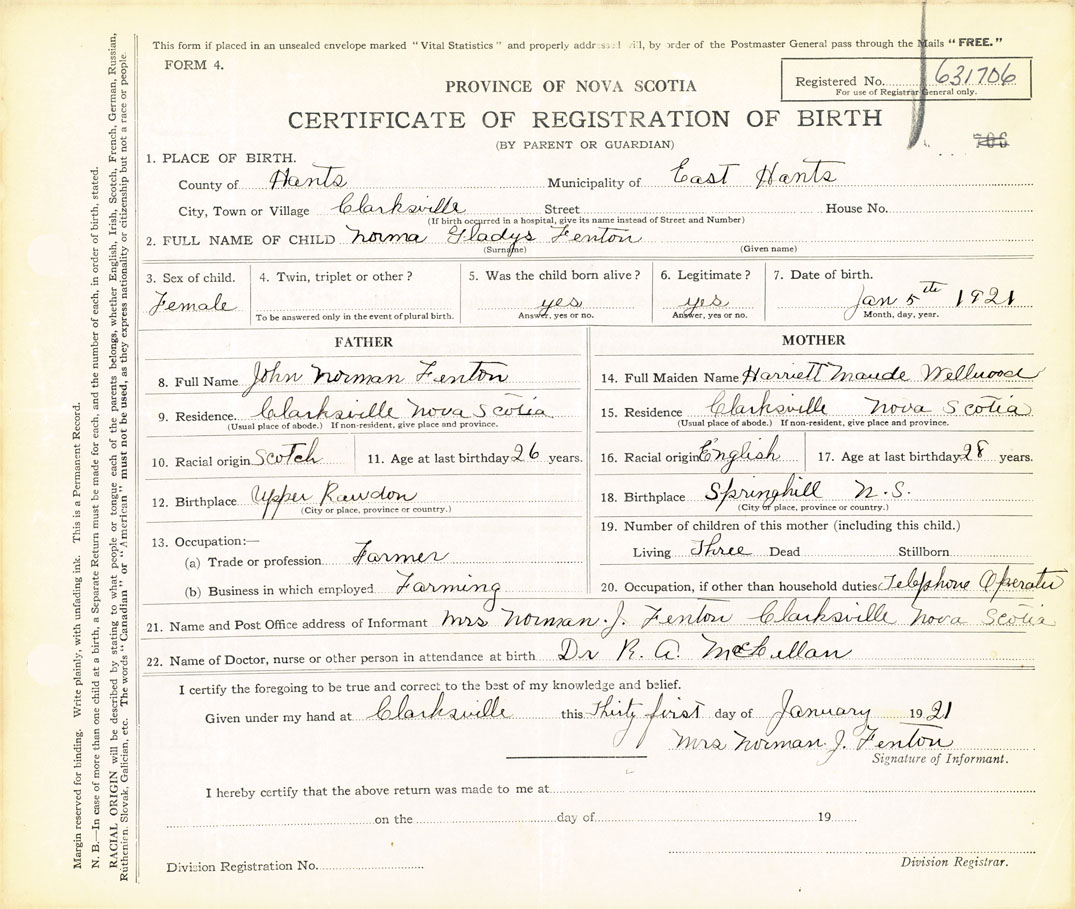 This form if placed in an unsealed envelope marked "Vital Statistics" and properly addressed will, by order of the Postmaster General pass through the Mails "FREE."
FORM 4.
Registered No. 631706
For use of Registrar General only.
PROVINCE OF NOVA SCOTIA
CERTIFICATE OF REGISTRATION OF BIRTH
(BY PARENT OR GUARDIAN)
706
1. PLACE OF BIRTH.
County of Hants Municipality of East Hants
City, Town or Village Clarksville Street House No.
(If birth occurred in a hospital, give its name instead of Street and Number)
2. FULL NAME OF CHILD Norma Gladys Fenton
(Surname) (Given name)
3. Sex of child. Female
4. Twin, triplet or other?
To be answered only in the event of plural birth.
5. Was the child born alive? yes
Answer, yes or no.
6. Legitimate? yes
Answer, yes or no.
7. Date of birth. Jan 5th 1921
Month, day, year.
FATHER
8. Full Name John Norman Fenton
9. Residence. Clarksville Nova Scotia
(Usual place of abode.) If non-resident, give place and province.
10. Racial origin Scotch 11. Age at last birthday 26 years.
12. Birthplace Upper Rawdon
(City or place, province or country.)
13. Occupation:—
(a) Trade or profession Farmer
(b) Business in which employed Farming
MOTHER
14. Full Maiden Name Harriett Maude Wellwood
15. Residence Clarksville Nova Scotia
(Usual place of abode.) If non-resident, give place and province.
16. Racial origin English 17. Age at last birthday 28 years.
18. Birthplace Springhill N.S.
(City or place, province or country.)
19. Number of children of this mother (including this child.)
Living Three Dead Stillborn
20. Occupation, if other than household duties Telephone Operator
21. Name and Post Office address of Informant Mrs Norman J. Fenton Clarksville Nova Scotia
22. Name of Doctor, nurse or other person in attendance at birth Dr R. A. McLellan
I certify the foregoing to be true and correct to the best of my knowledge and belief.
Given under my hand at Clarksville this Thirty first day of January 1921
Mrs Norman J. Fenton
Signature of Informant.
I hereby certify that the above return was made to me at
on the day of 19
Division Registration No.
Division Registrar.
Margin reserved for binding. Write plainly, with unfading ink. This is a Permanent Record.
N. B.—In case of more than one child at a birth, a Separate Return must be made for each, and the number of each, in order of birth, stated.
RACIAL ORIGIN will be described by stating to what people or tongue each of the parents belongs, whether English, Irish, Scotch, French, German, Russian,
Ruthenien, Slovak, Galician, etc. The words "Canadian" or "American" must not be used, as they express nationality or citizenship but not a race or people.